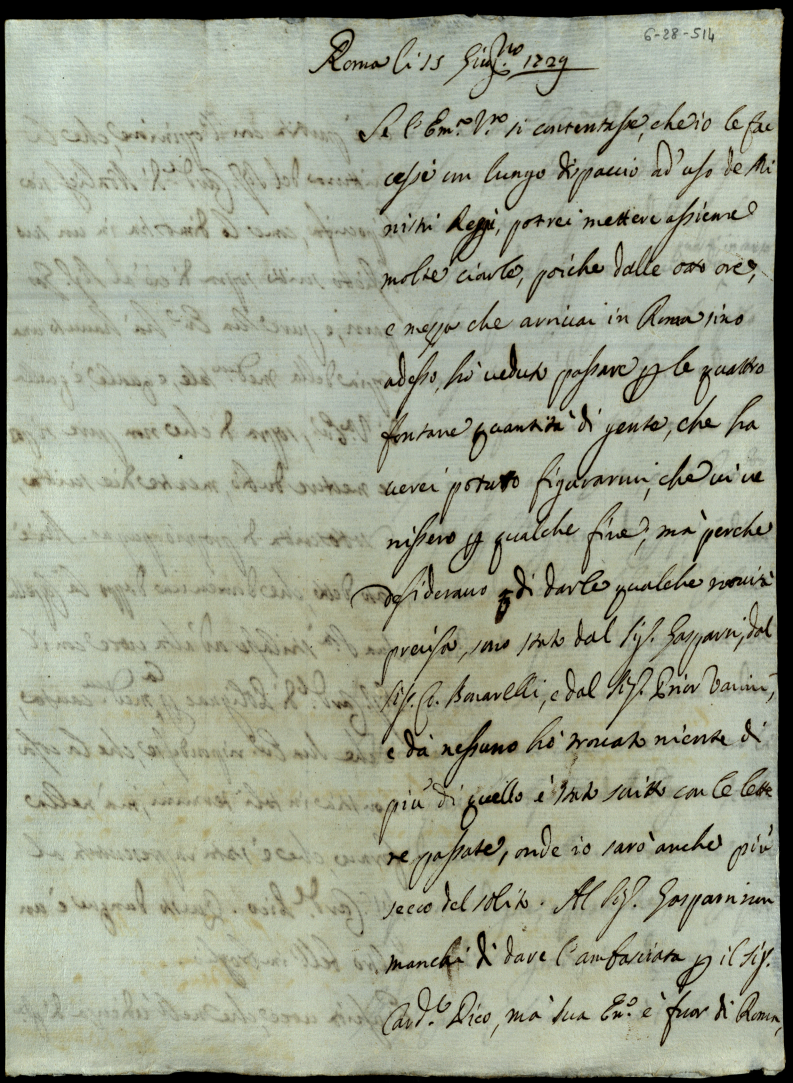 6-28-514
Roma li 15 Giug.no 1729
Se l'Em.a V.ra si contentasse, che io le fa
cessi un lungo dispaccio ad' uso de Mi
nistri Reggi, potrei mettere assieme
molte ciarle, poiche dalle otto ore,
e mezza che arrivai in Roma sino
adesso, hò veduto passare per le quattro
fontane quantità di gente, che ha
verei potuto figurarmi, che ci ve
nissero per qualche fine, mà perche
desideravo di darle qualche novità
precisa, sono stato dal Sig. Gasparri, dal
Sig. C. Bonarelli, e dal Sig. Prior Vanni,
e dà nessuno hò trovato niente di
più di quello è stato scritto con le lette
re passate, onde io sarò anche più
secco del solito. Al Sig. Gasparri non
mancai di dare l'ambasciata per il Sig.
Card.le Pico, mà sua Em.a è fuor di Roma,